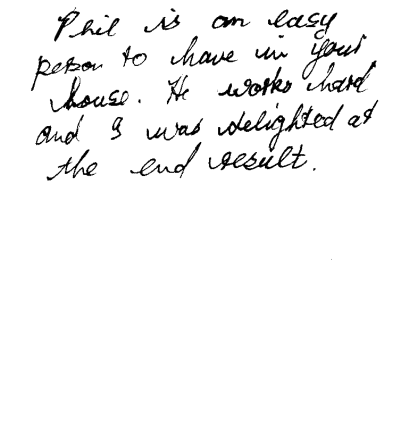 Phil is an easy
person to have in your
house. He works hard
and I was delighted at
the end result.